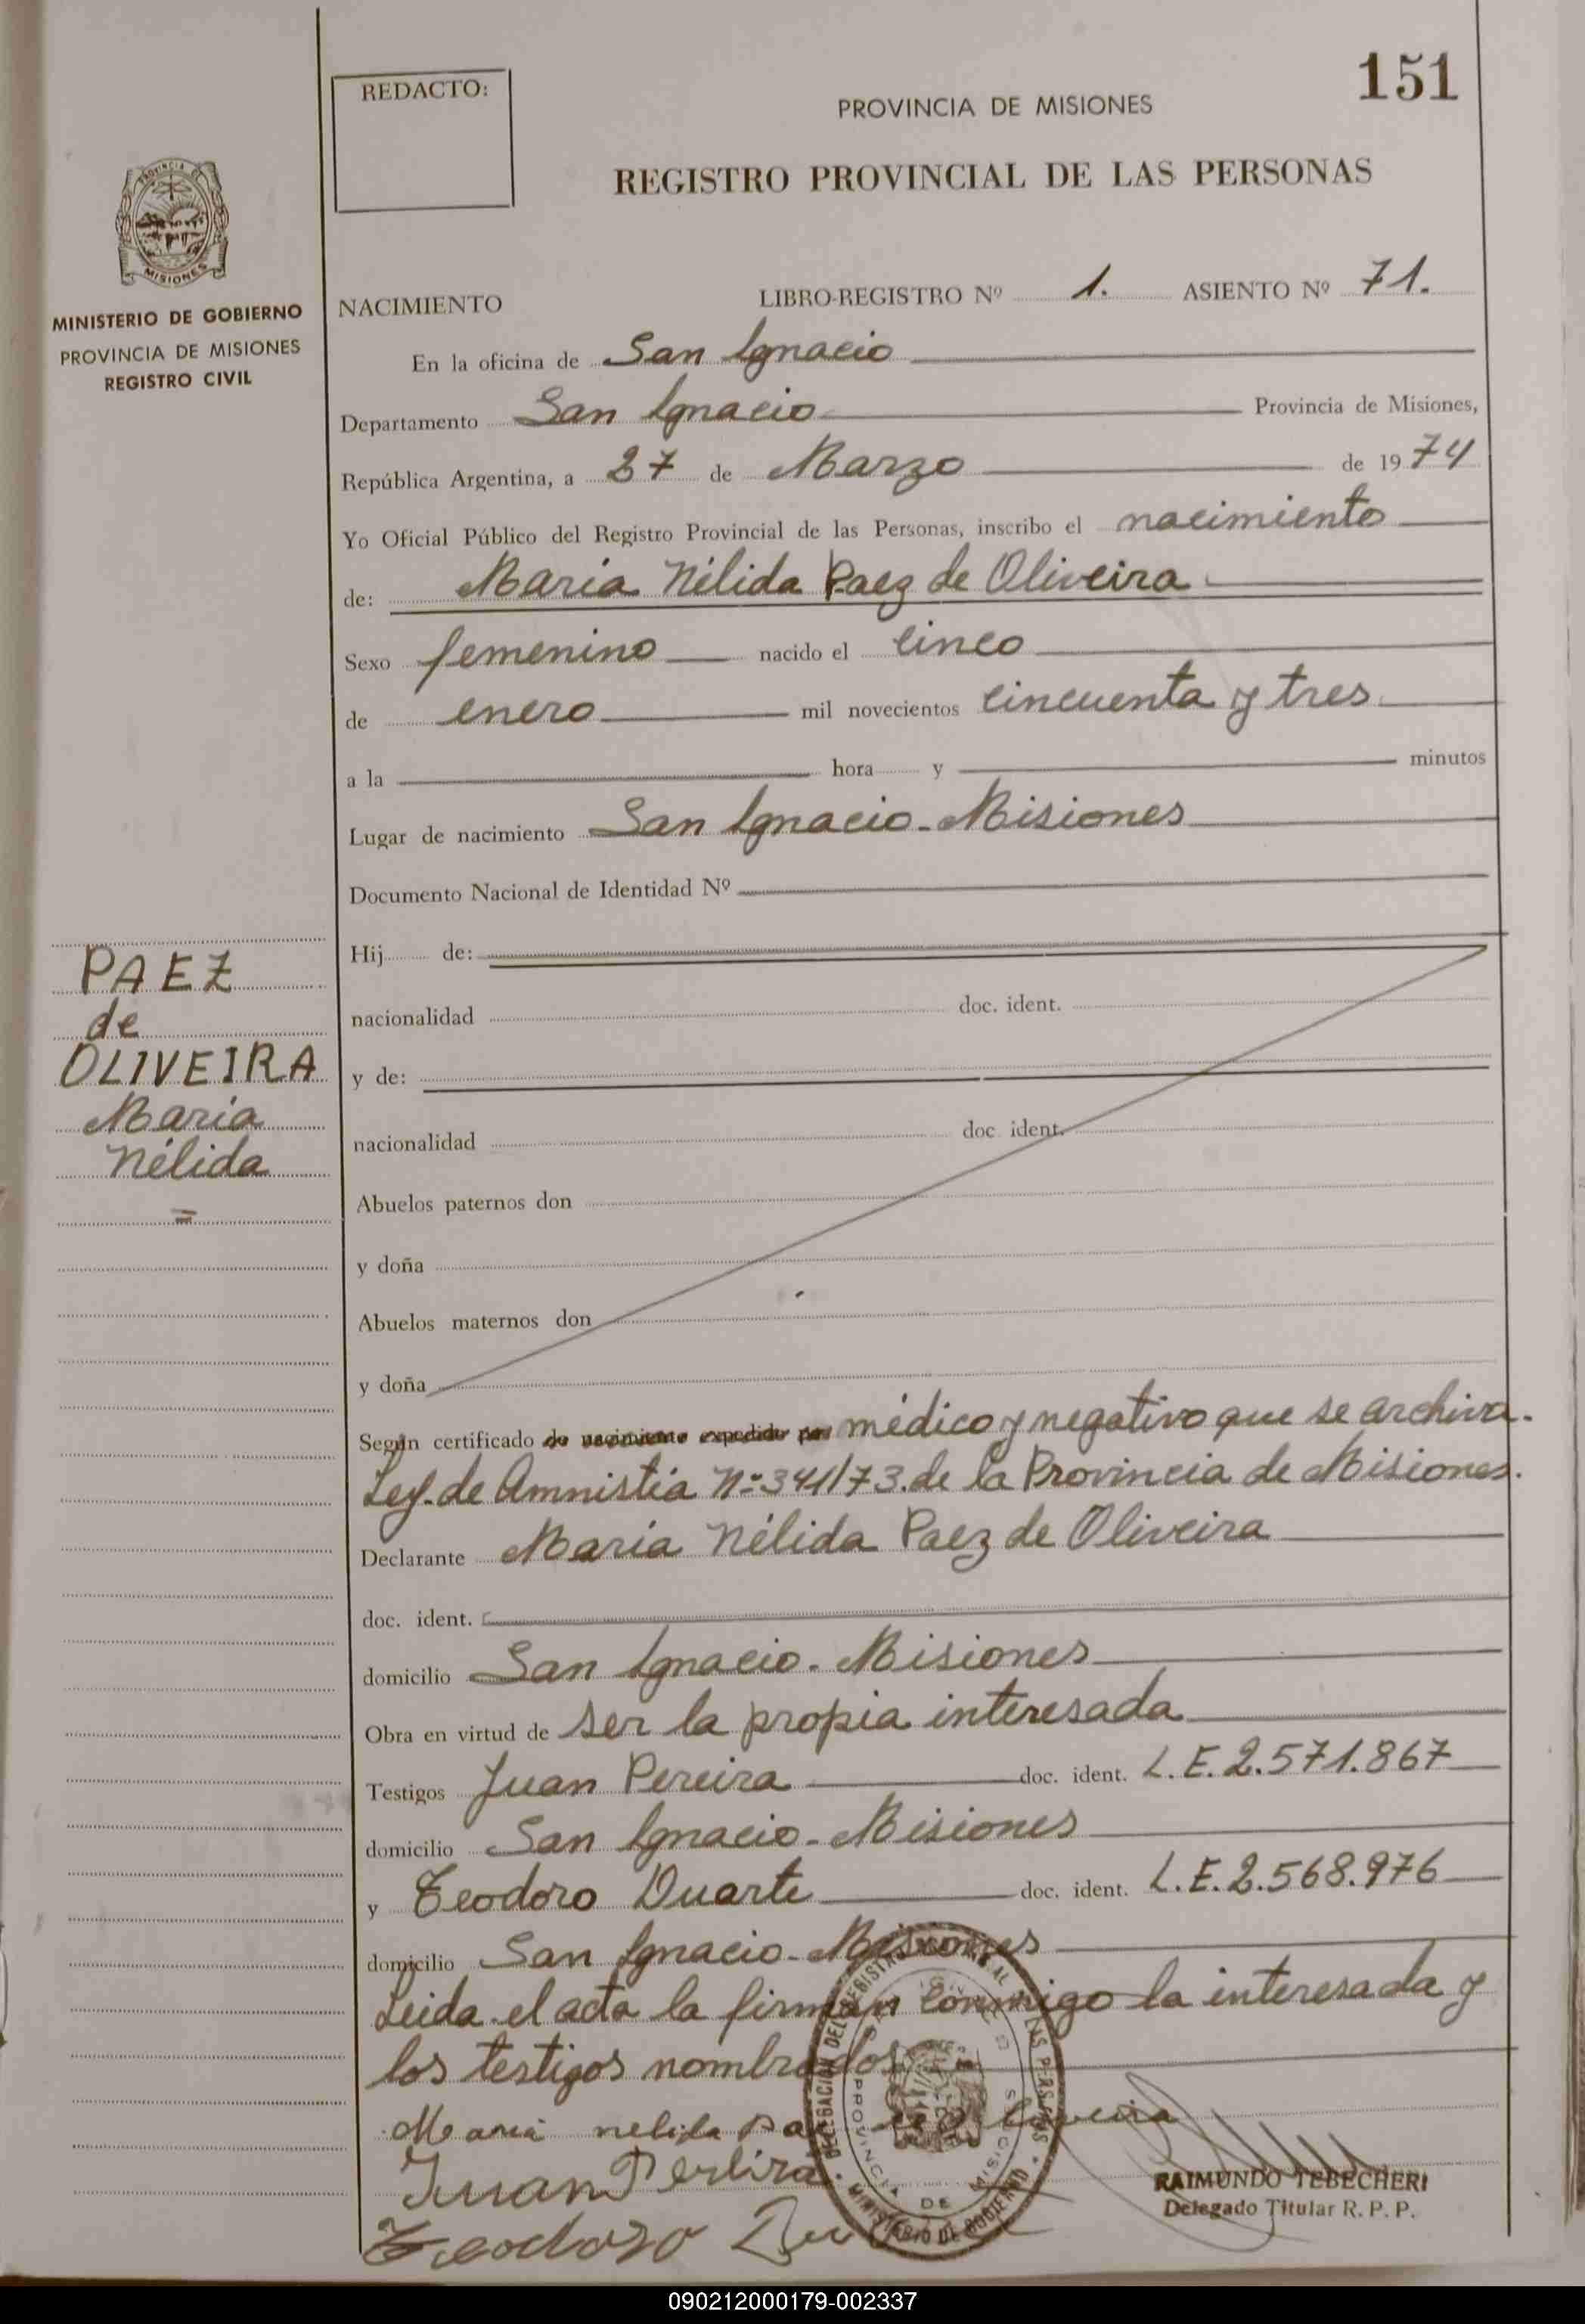 151
REDACTO:
PROVINCIA DE MISIONES
REGISTRO PROVINCIAL DE LAS PERSONAS
PROVINCIA DE
MISIONES
MINISTERIO DE GOBIERNO
PROVINCIA DE MISIONES
REGISTRO CIVIL
NACIMIENTO LIBRO-REGISTRO Nº 1. ASIENTO Nº 71.
En la oficina de San Ignacio
Departamento San Ignacio Provincia de Misiones,
República Argentina, a 27 de Marzo de 1974
Yo Oficial Público del Registro Provincial de las Personas, inscribo el nacimiento
de: María Nélida Paez de Oliveira
Sexo femenino nacido el cinco
de enero mil novecientos cincuenta y tres
a la hora y minutos
Lugar de nacimiento San Ignacio - Misiones
Documento Nacional de Identidad Nº
Hij de:
nacionalidad doc. ident.
y de:
nacionalidad doc. ident.
Abuelos paternos don
y doña
Abuelos maternos don
y doña
PAEZ
de
OLIVEIRA
María
Nélida
=
Según certificado de nacimiento expedido por médico y negativo que se archiva.
Ley de Amnistía Nº 341/73. de la Provincia de Misiones.
Declarante María Nélida Paez de Oliveira
doc. ident.
domicilio San Ignacio. Misiones
Obra en virtud de ser la propia interesada
Testigos Juan Pereira doc. ident. L.E. 2.571.867
domicilio San Ignacio - Misiones
y Teodoro Duarte doc. ident. L.E. 2.568.976
domicilio San Ignacio - Misiones
Leida el acta la firman conmigo la interesada y
los testigos nombrados
Maria nelida
Juan Pereira
Teodoro
DELEGACION DEL REGISTRO PERSONAS
MINISTERIO DE GOBIERNO
PROVINCIA DE MISIONES
RAIMUNDO TEBECHERI
Delegado Titular R. P. P.
090212000179-002337